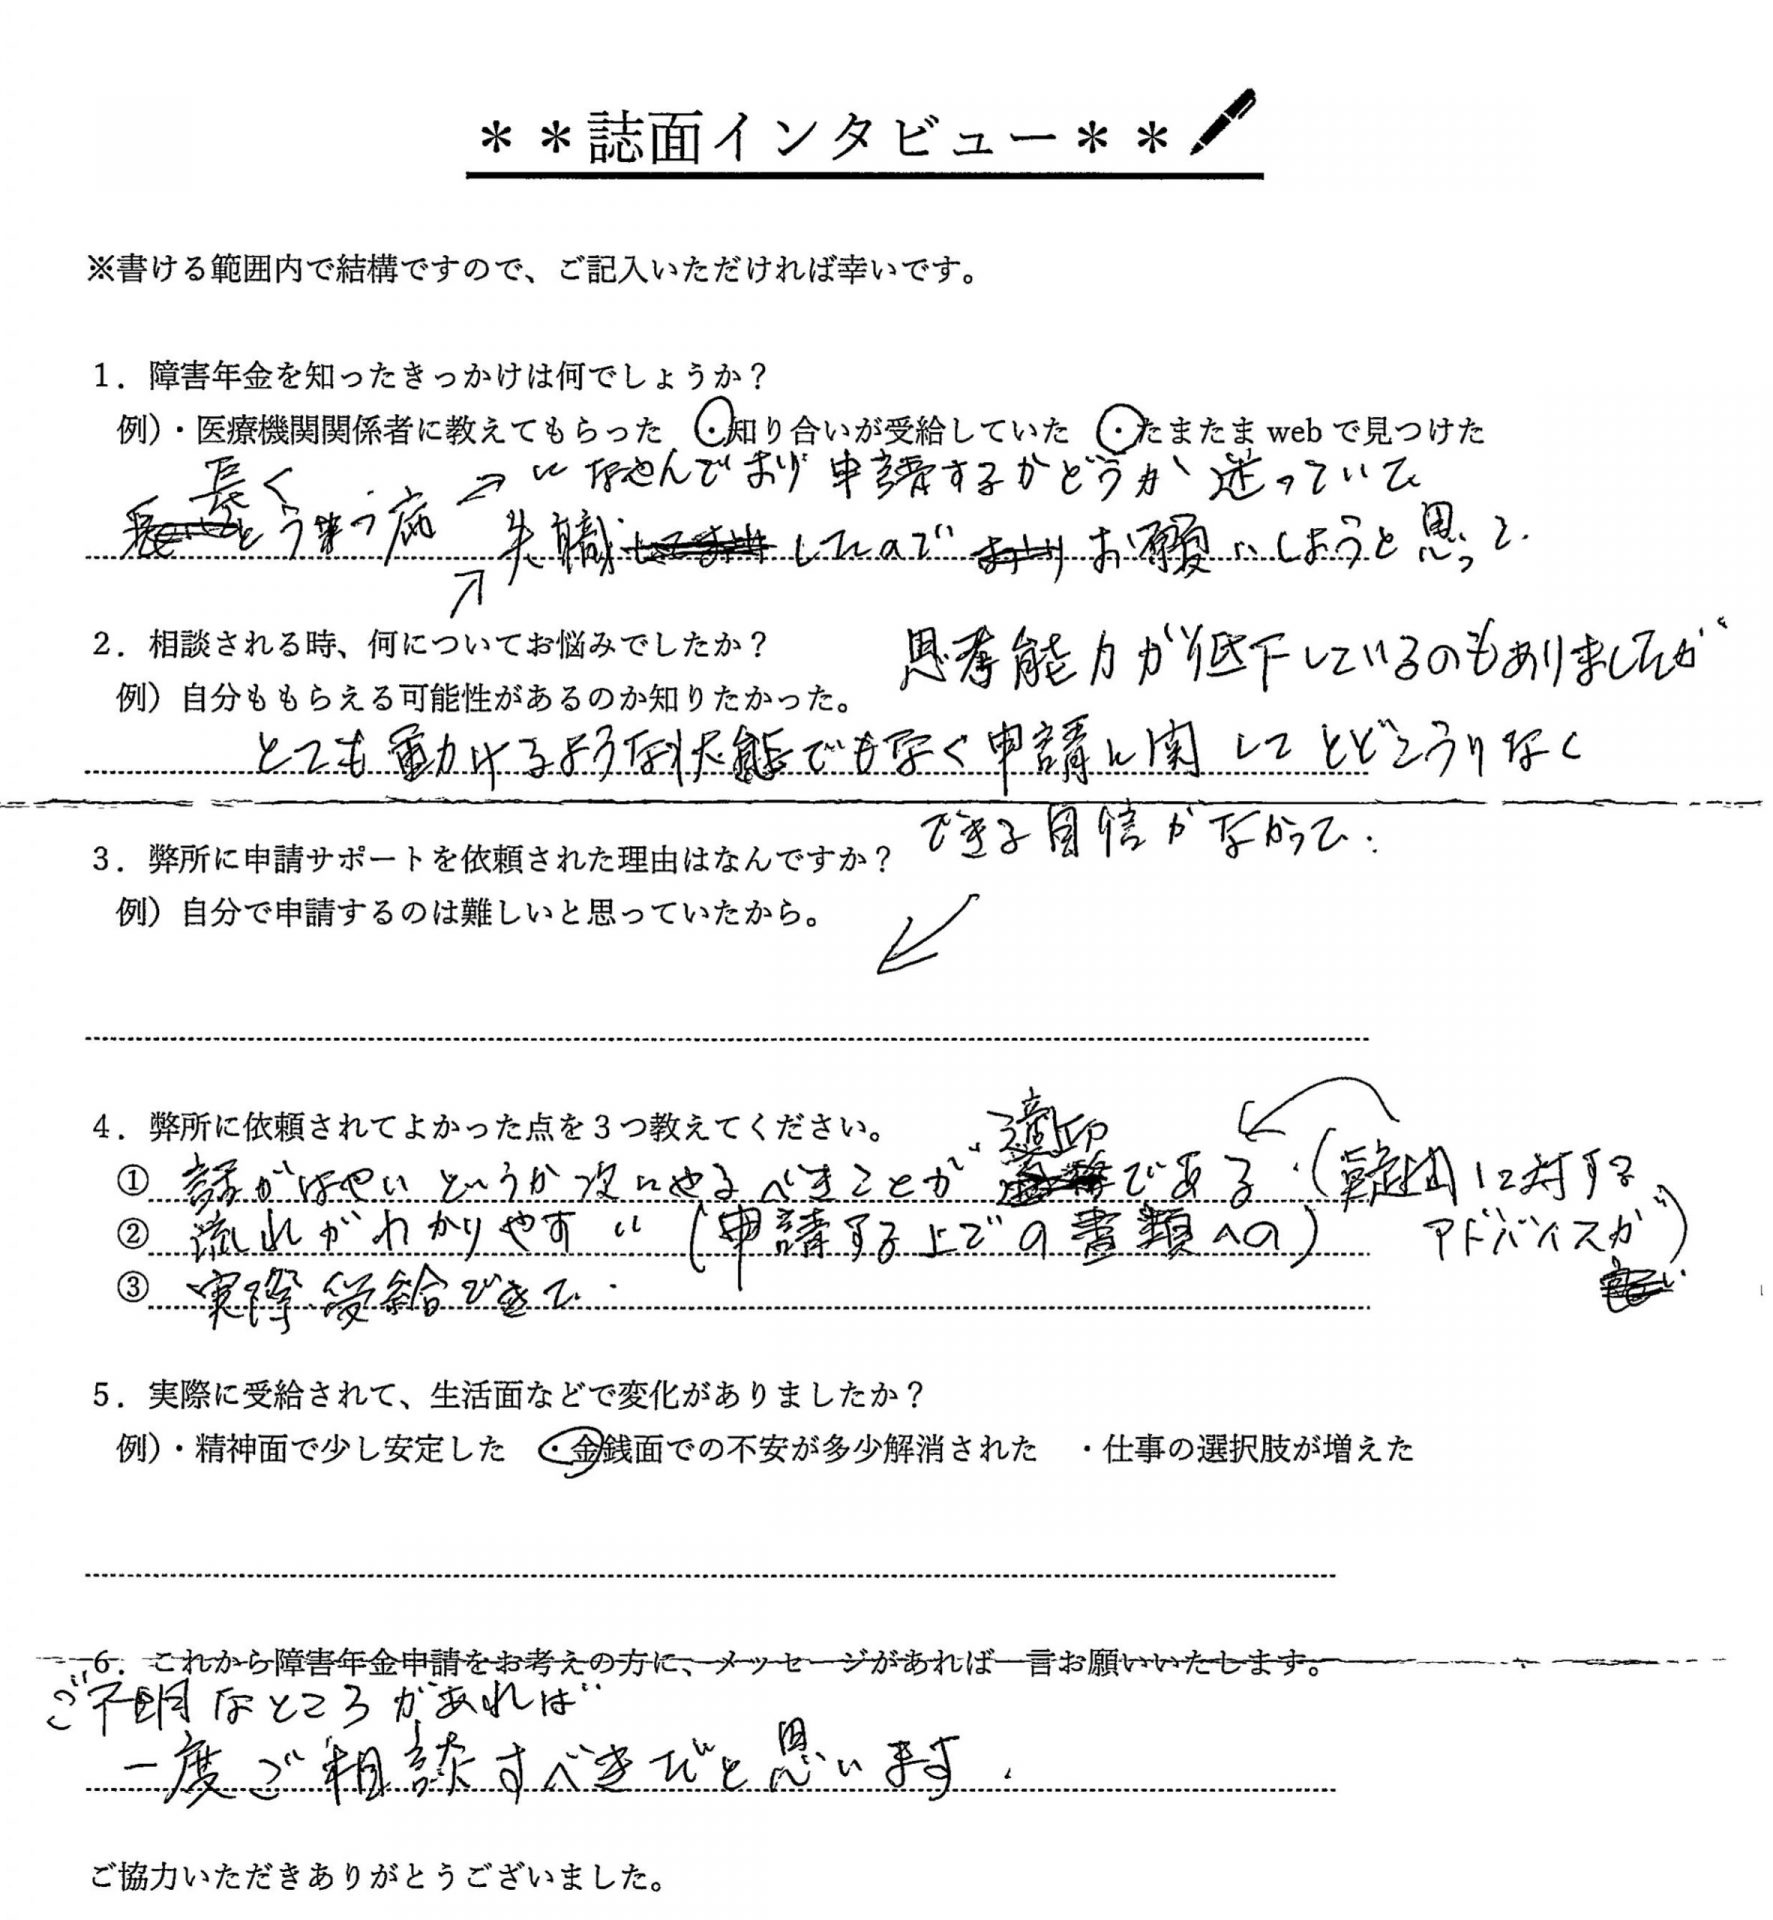 ＊＊誌面インタビュー＊＊
※書ける範囲内で結構ですので、ご記入いただければ幸いです。
1．障害年金を知ったきっかけは何でしょうか？
例）・医療機関関係者に教えてもらった ・知り合いが受給していた ・たまたま web で見つけた
長く
とうまつう病
になやんでおり 申請するかどうか 迷っていて
失職 したので お願いしようと思って.
2．相談される時、何についてお悩みでしたか？
例）自分ももらえる可能性があるのか知りたかった。
思考能力が低下しているのもありましたが
とても動けるような状態でもなく申請に関してとどこうりなく
できる自信がなかった.
3．弊所に申請サポートを依頼された理由はなんですか？
例）自分で申請するのは難しいと思っていたから。
4．弊所に依頼されてよかった点を３つ教えてください。
適切
① 話がはやいというか次にやるべきことが である. (難出に対する
② 流れがわかりやすい (申請する上での書類への) アドバイスが)
③ 実際受給できた.
5．実際に受給されて、生活面などで変化がありましたか？
例）・精神面で少し安定した ・金銭面での不安が多少解消された ・仕事の選択肢が増えた
6．これから障害年金申請をお考えの方に、メッセージがあれば一言お願いいたします。
ご不明なところがあれば
一度ご相談すべきだと思います.
ご協力いただきありがとうございました。